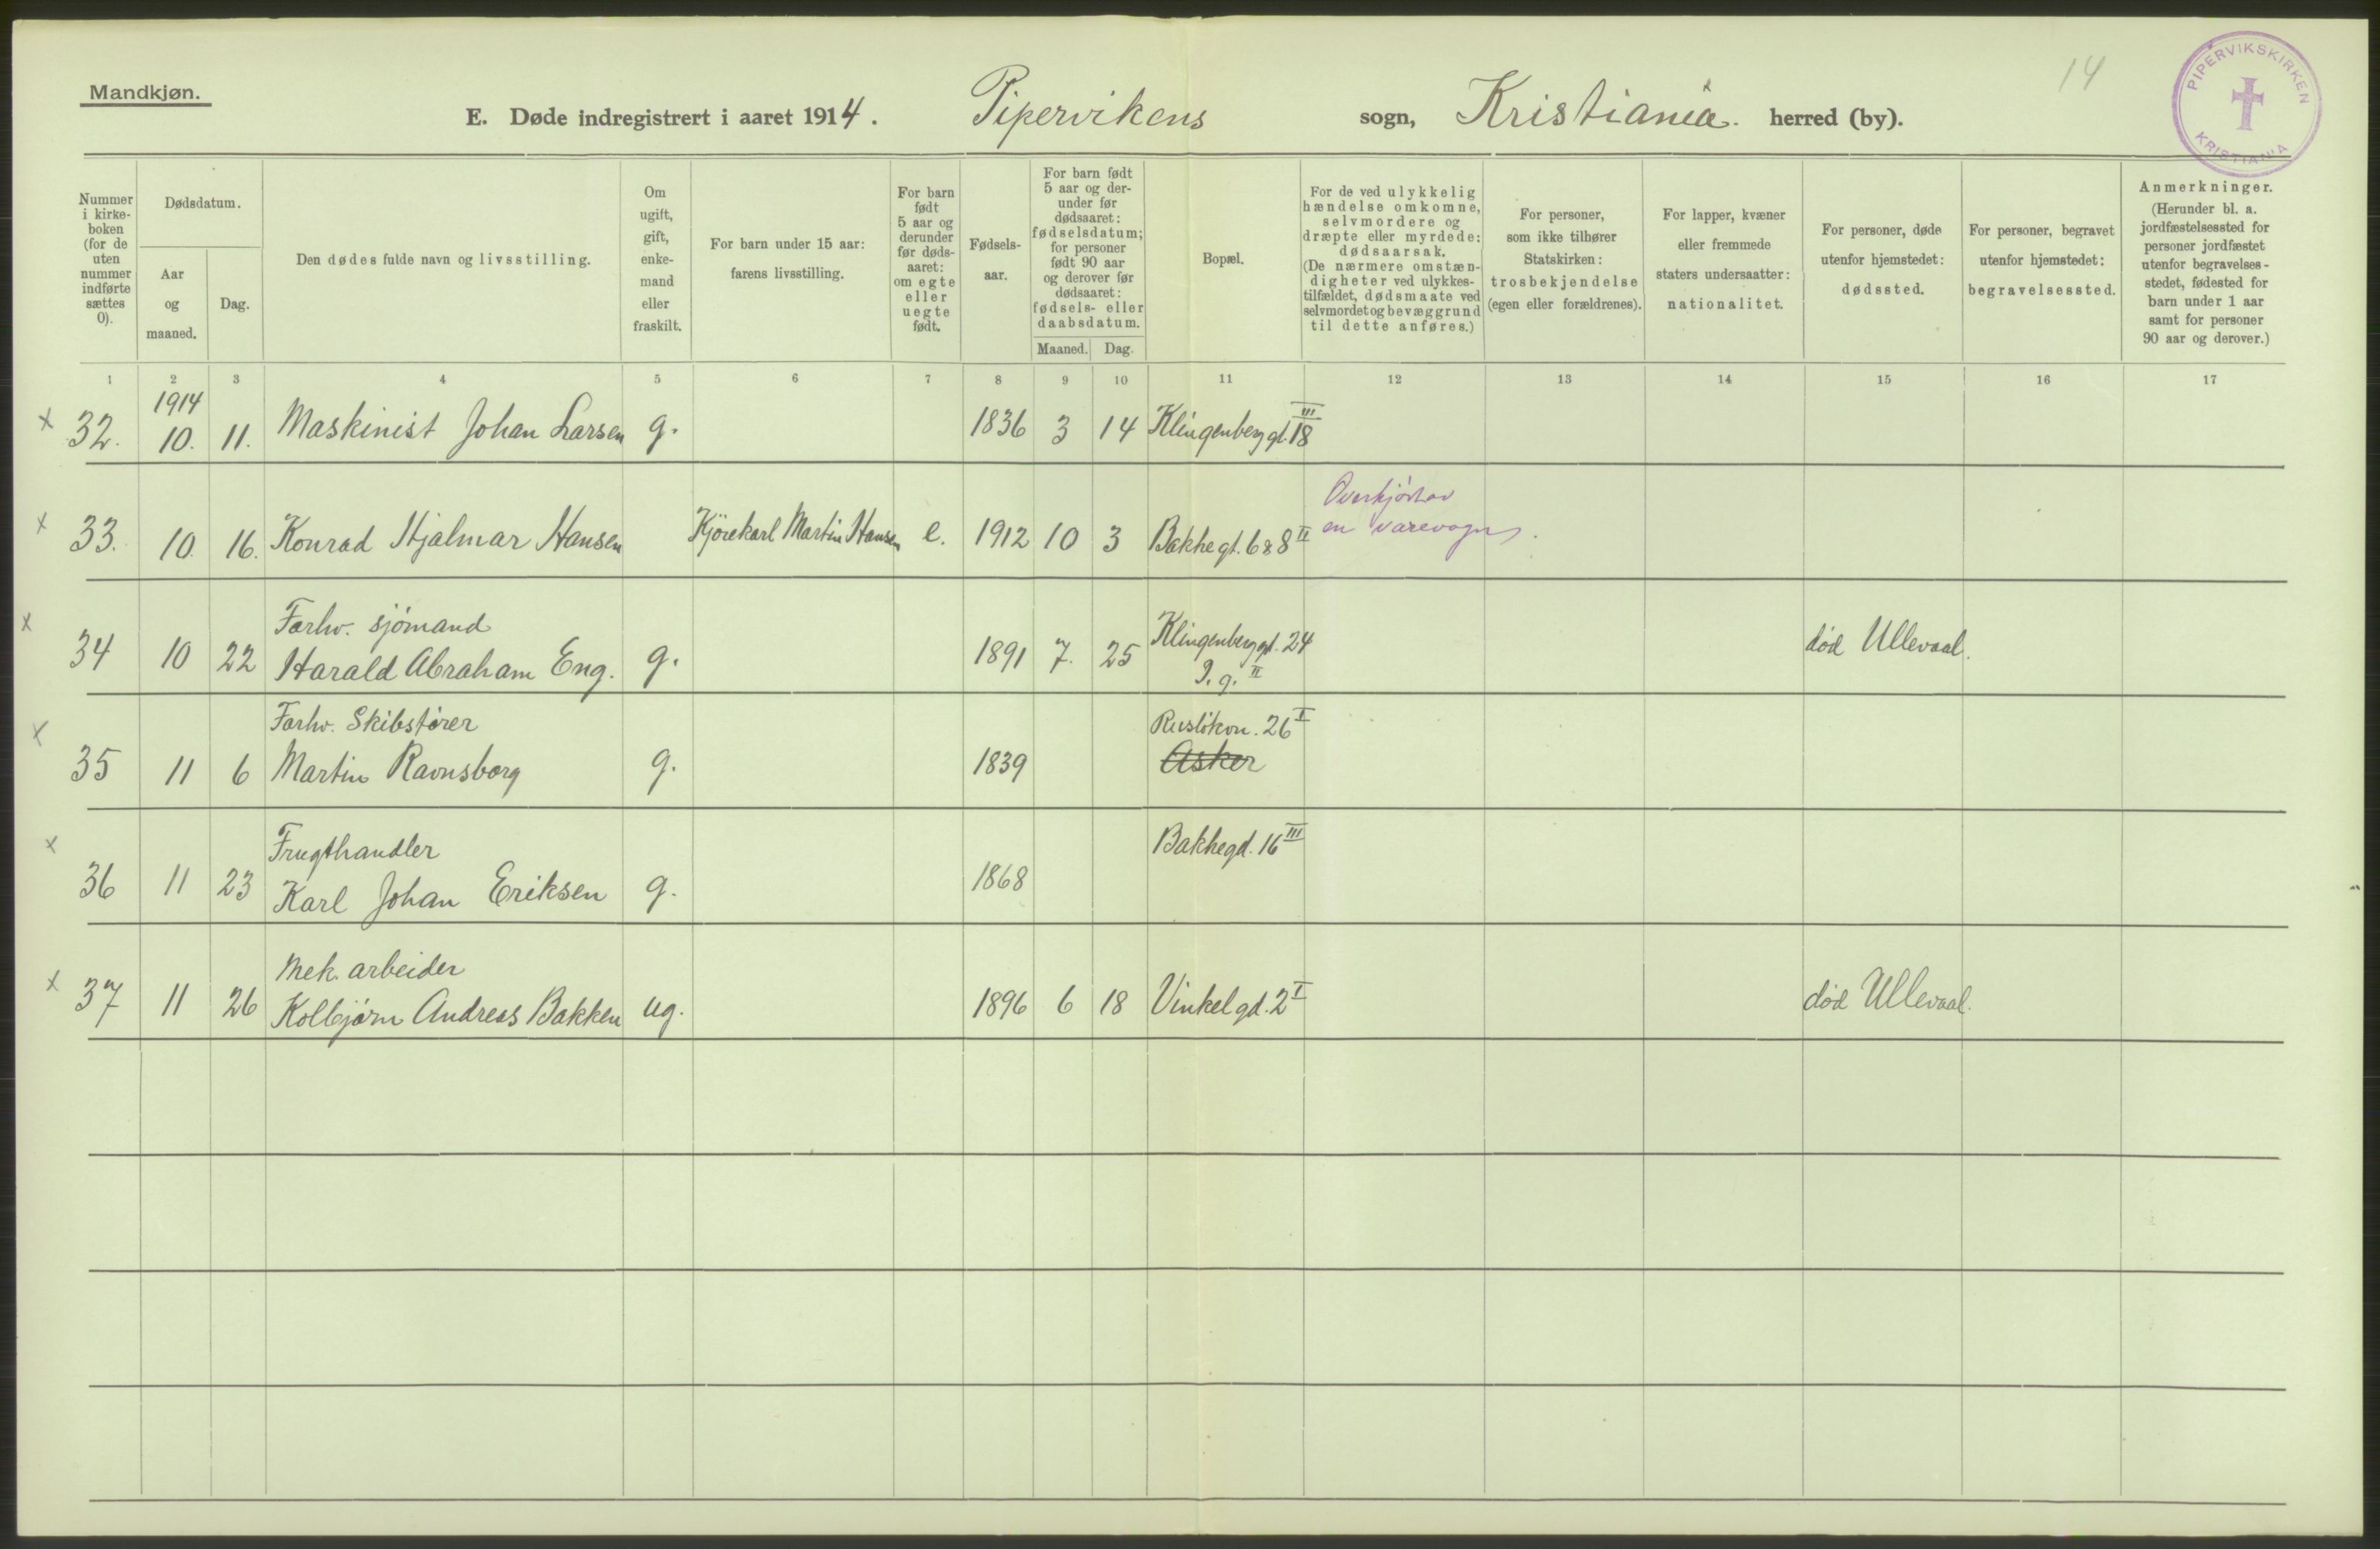 Mandkjøn.
E. Døde indregistrert i aaret 1914. Pipervikens sogn, Kristiania. herred (by).
14
PIPERVIKSKIRKEN
KRISTIANIA
Nummer i kirke-boken (for de uten nummer indførte sættes 0).
Dødsdatum.
Aar og maaned.
Dag.
Den dødes fulde navn og livsstilling.
Om ugift, gift, enke-mand eller fraskilt.
For barn under 15 aar: farens livsstilling.
For barn født 5 aar og derunder før døds-aaret: om egte eller uegte født.
Fødsels-aar.
For barn født 5 aar og der-under før dødsaaret: fødselsdatum; for personer født 90 aar og derover før dødsaaret: fødsels- eller daabsdatum.
Maaned.
Dag.
Bopæl.
For de ved ulykkelig hændelse omkomne, selvmordere og dræpte eller myrdede: dødsaarsak. (De nærmere omstæn-digheter ved ulykkes-tilfældet, dødsmaate ved selvmordet og bevæggrund til dette anføres.)
For personer, som ikke tilhører Statskirken: trosbekjendelse (egen eller forældrenes).
For lapper, kvæner eller fremmede staters undersaatter: nationalitet.
For personer, døde utenfor hjemstedet: dødssted.
For personer, begravet utenfor hjemstedet: begravelsessted.
Anmerkninger. (Herunder bl. a. jordfæstelsessted for personer jordfæstet utenfor begravelses-stedet, fødested for barn under 1 aar samt for personer 90 aar og derover.)
1 2 3 4 5 6 7 8 9 10 11 12 13 14 15 16 17
1914
x 32. 10. 11. Maskinist Johan Larsen g. 1836 3 14 Klingenberggt. 18 III
x 33. 10. 16. Konrad Hjalmar Hansen Kjörekarl Martin Hansen e. 1912 10 3 Bakkegt. 6 & 8 II Overkjørt av
en varevogn.
x Forhv. sjömand Klingenberggt. 24
34 10 22 Harald Abraham Eng. g. 1891 7. 25 II død Ullevaal.
x Forhv. Skibsfører Rusløkvn. 26 I
35 11 6 Martin Ravnsborg g. 1839 Asker
x Frugthandler Bakkegd. 16 III
36 11 23 Karl Johan Eriksen g. 1868
Mek. arbeider
x 37 11 26 Kolbjørn Andreas Bakken ug. 1896 6 18 Vinkelgd. 2 I død Ullevaal.